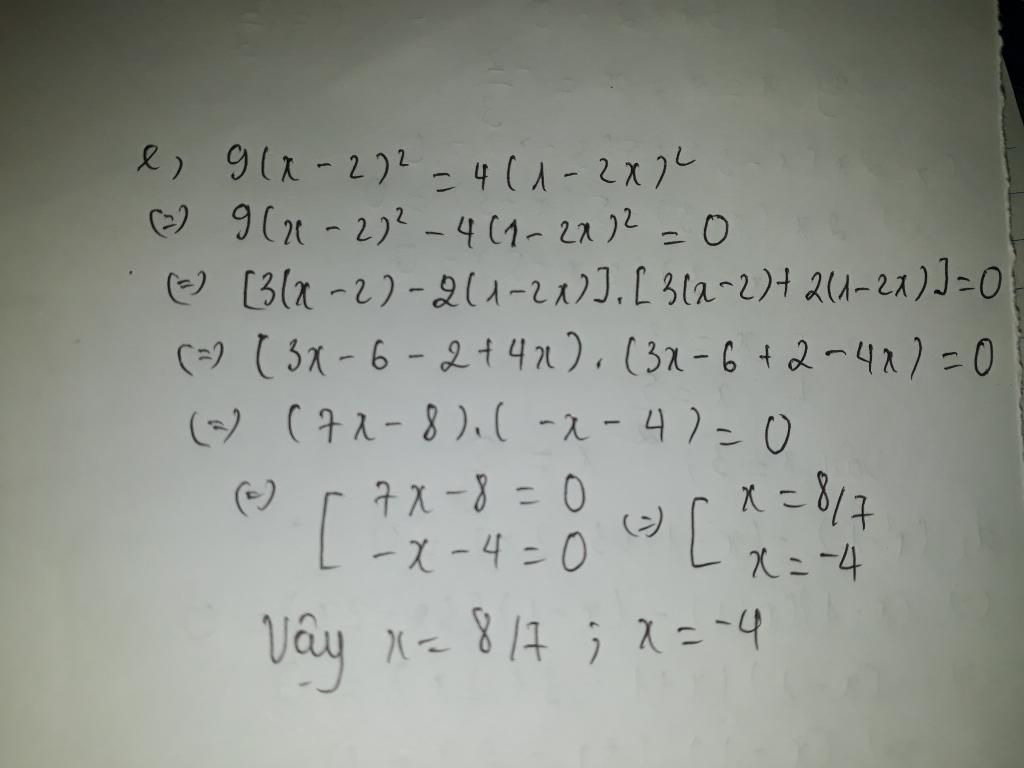 e, 9(x - 2)² = 4(1 - 2x)²
(=) 9(x - 2)² - 4(1 - 2x)² = 0
(=) [3(x - 2) - 2(1 - 2x)].[3(x - 2) + 2(1 - 2x)] = 0
(=) (3x - 6 - 2 + 4x).(3x - 6 + 2 - 4x) = 0
(=) (7x - 8).(-x - 4) = 0
(=) [ 7x - 8 = 0 (=) [ x = 8/7
-x - 4 = 0 x = -4
Vậy x = 8/7 ; x = -4